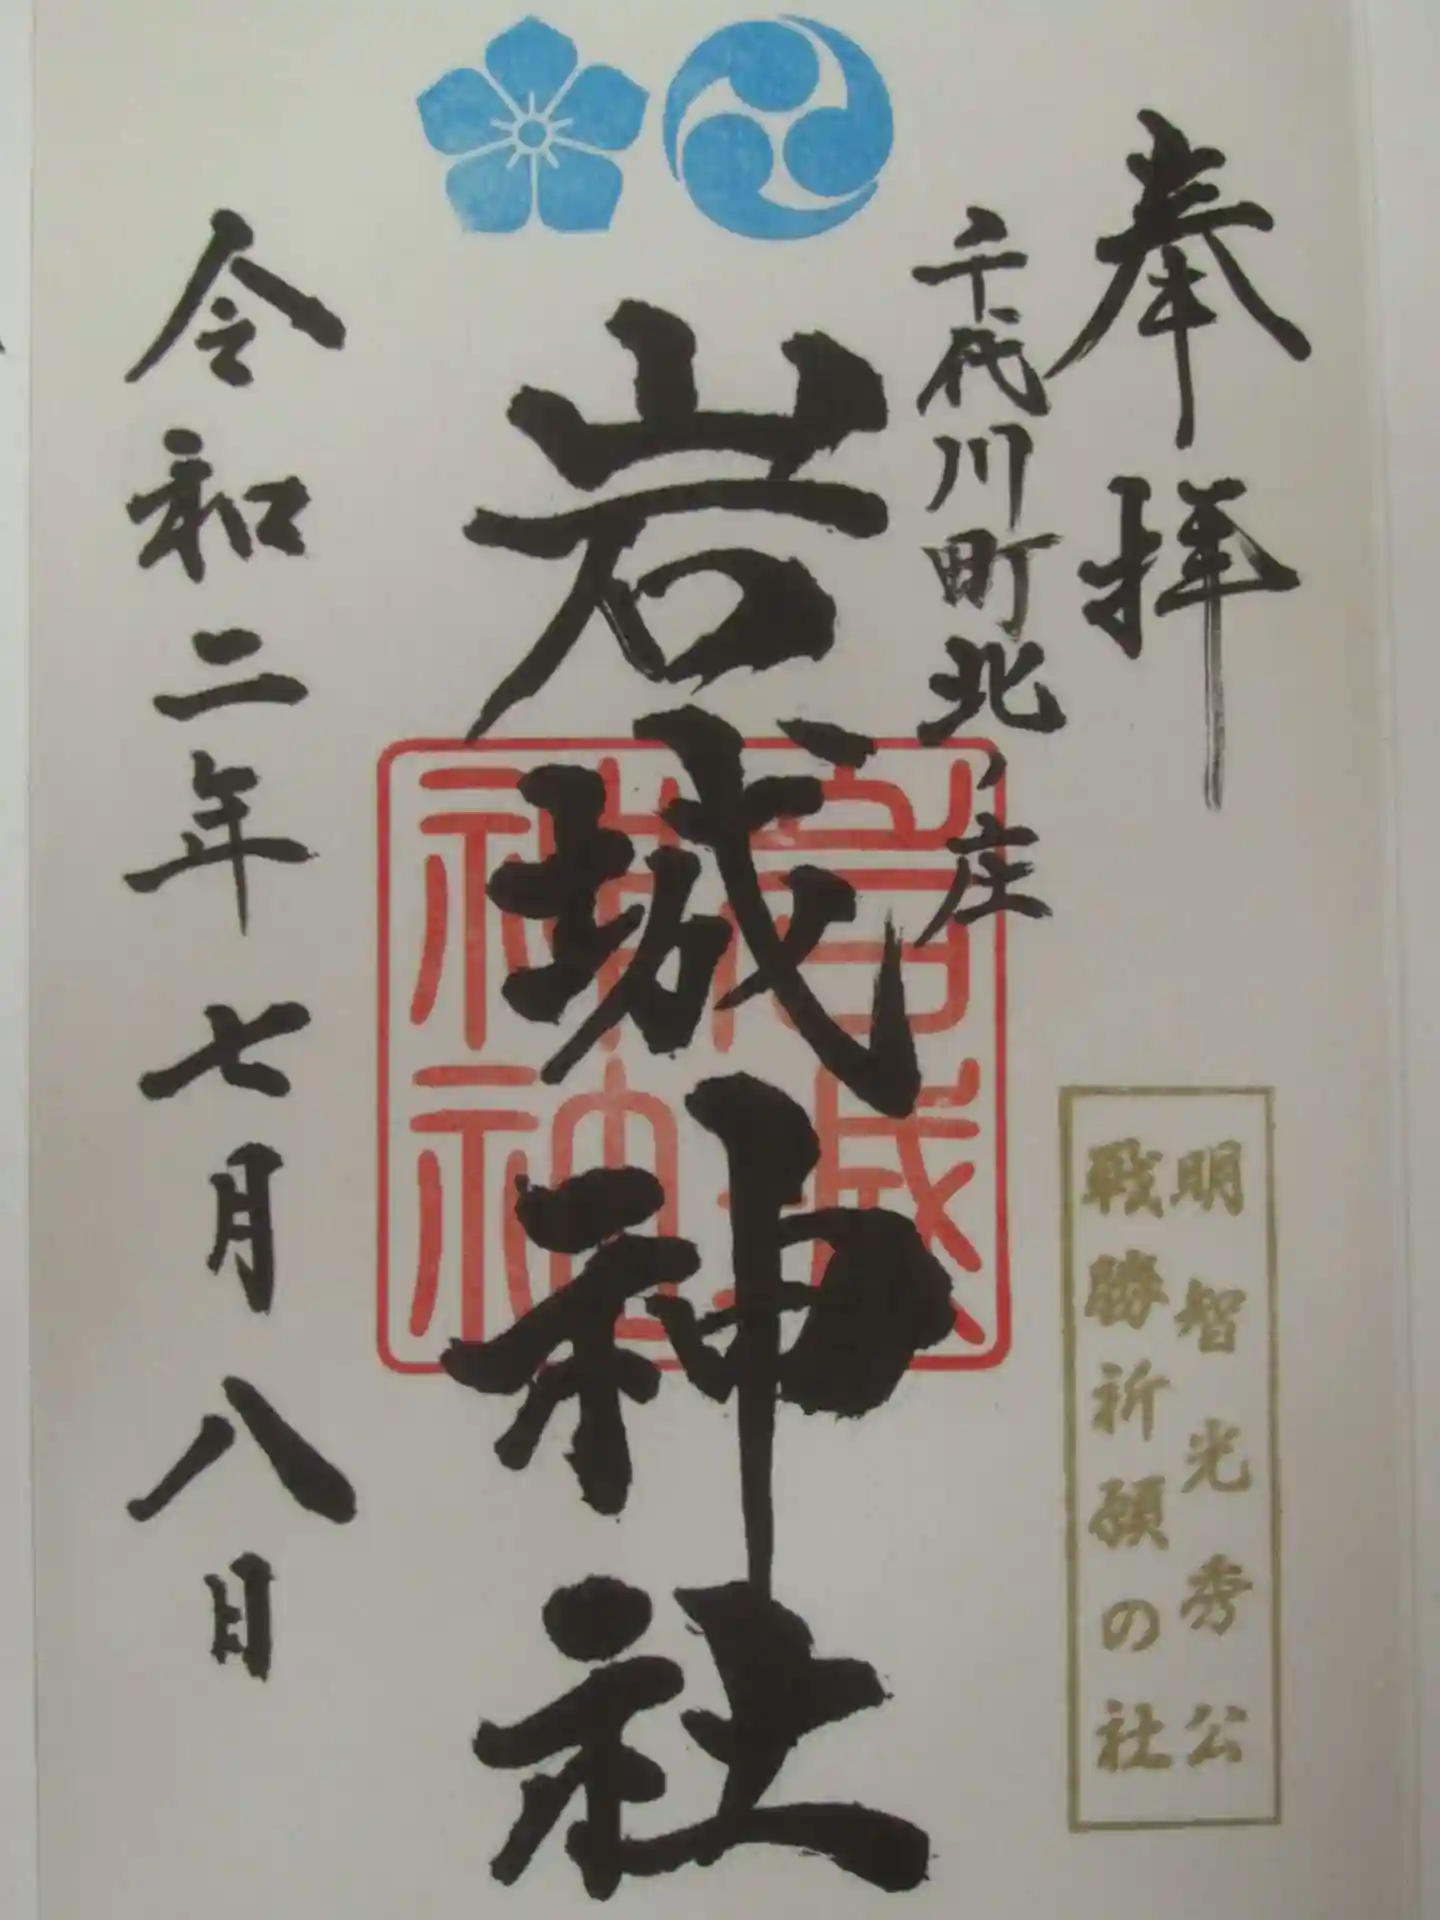 奉拝
千代川町北ノ庄
岩城神社
令和二年七月八日
明智光秀公
戦勝祈願の社